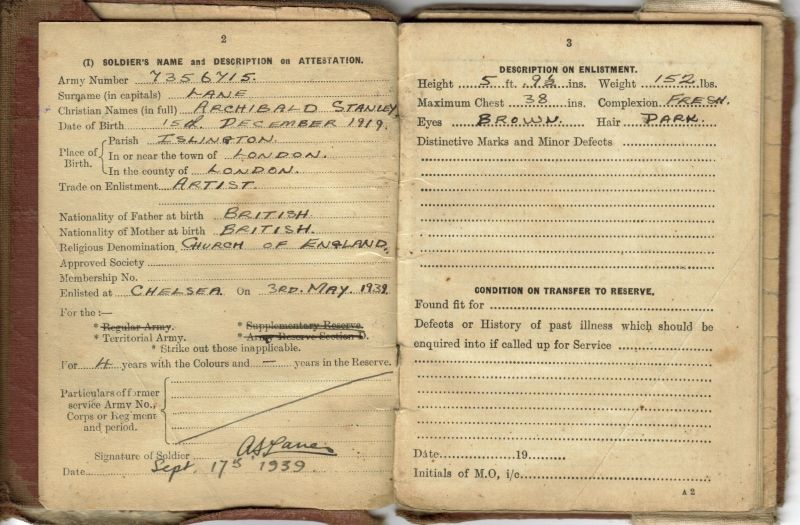 2
(I) SOLDIER'S NAME and DESCRIPTION on ATTESTATION.
Army Number 7356715.
Surname (in capitals) LANE
Christian Names (in full) ARCHIBALD STANLEY.
Date of Birth 15th DECEMBER 1919.
Place of Birth.
Parish ISLINGTON.
In or near the town of LONDON.
In the county of LONDON.
Trade on Enlistment ARTIST.
Nationality of Father at birth BRITISH.
Nationality of Mother at birth BRITISH.
Religious Denomination CHURCH OF ENGLAND.
Approved Society
Membership No.
Enlisted at CHELSEA On 3RD. MAY. 1939.
For the :—
* Regular Army. * Supplementary Reserve.
* Territorial Army. * Army Reserve Section D.
* Strike out those inapplicable.
For 4 years with the Colours and — years in the Reserve.
Particulars of former
service Army No.,
Corps or Regiment
and period.
Signature of Soldier A S Lane
Date Sept. 17th 1939
3
DESCRIPTION ON ENLISTMENT.
Height 5 ft. 9½ ins. Weight 152 lbs.
Maximum Chest 38 ins. Complexion FRESH.
Eyes BROWN. Hair DARK.
Distinctive Marks and Minor Defects
CONDITION ON TRANSFER TO RESERVE.
Found fit for
Defects or History of past illness which should be
enquired into if called up for Service
Date 19
Initials of M.O, i/c
A 2